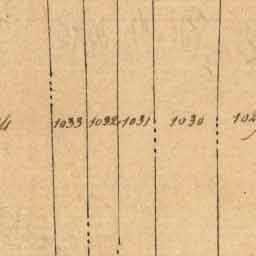 1033 1032 1031 1030